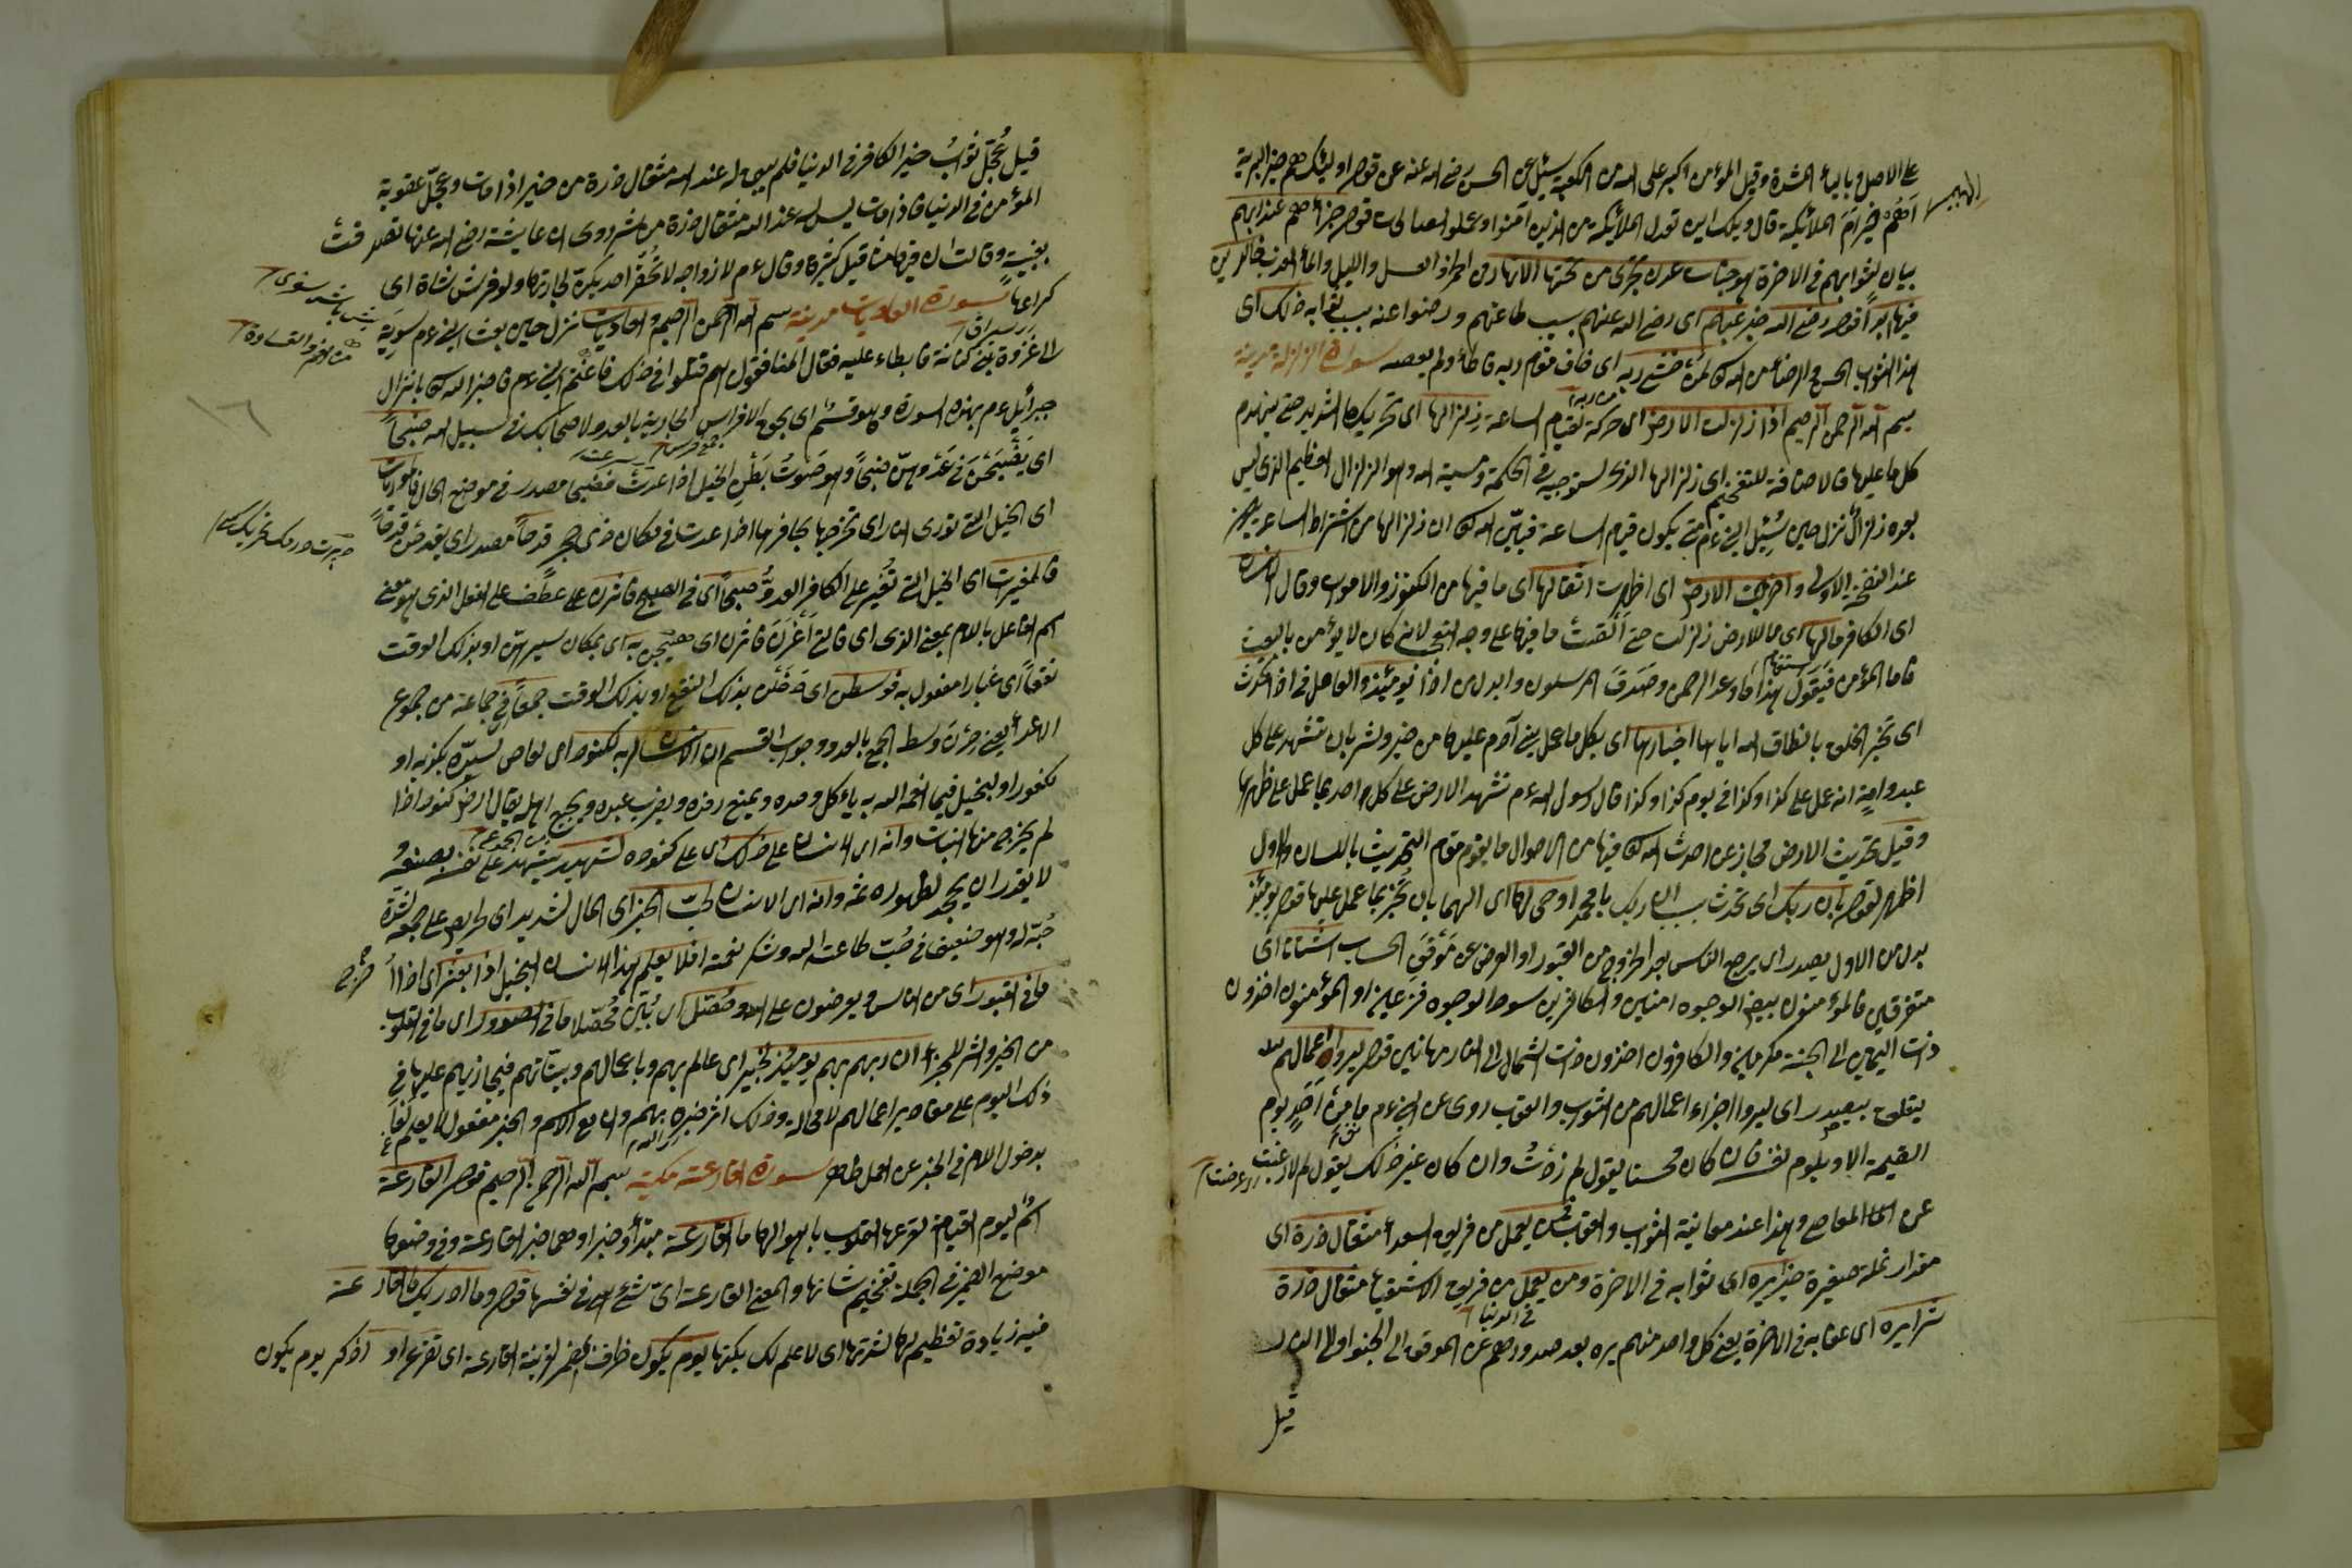 على الاصل وبالياء المشددة وقيل المؤمن اكبر على الله من الكعبة سئل عن الحسن رضى الله عنه عن قوله اولئك هم خير البرية
أهُم خير أم الملائكة قال ويلك اين تعدل الملائكة من الذين آمنوا وعملوا الصالحات قوله جزاؤهم عند ربهم
بيان لثوابهم فى الاخرة هو جنات عدن تجرى من تحتها الانهار من الخمر والعسل واللبن والماء العذب خالدين
فيها ابدا قوله رضى الله عنهم اى رضى الله عنهم بسبب طاعتهم ورضوا عنه بسبب ثوابه ذلك اى
هذا الثواب الحسن والرضاء من الله لمن خشى ربه اى خاف مقام ربه فاطاعه ولم يعصه سورة الزلزلة مدينة
بسم الله الرحمن الرحيم اذا زلزلت الارض اى حركة لقيام الساعة زلزالها اى تحريكها الشديد حتى ينهدم
كل ما عليها فالاضافة للتفخيم اى زلزالها الذى تستوجبه فى الحكمة ومشية الله وهو الزلزال العظيم الذى ليس
بعده زلزال نزل حين سُئِل النبى ءم متى يكون قيام الساعة فبيّن الله ان زلزالها من اشتراط الساعة
عند النفخة الاولى واخرجت الارض اى اظهرت اثقالها اى ما فيها من الكنوز والاموات وقال الانسان
اى الكافر مالها اى ما للارض زلزلت حتى ألقت ما فيها على وجه التعجب لانه كان لا يؤمن بالبعث
فاما المؤمن فيقول هذا ما وعد الرحمن وصدق المرسلون وابدل من اذا يومئذ والعامل فى اذا تحدث
اى تخبر الخلق بانطاق الله اياها اخبارها اى بكل ما عمل بنى آدم عليها من خير وشر بان تشهد على كل
عبد وامة انه عمل على كذا وكذا فى يوم كذا وكذا قال رسول الله ءم تشهد الارض على كل احد بما عمل على ظهرها
وقيل تحديث الارض مجاز عن احداث الله فيها من الاحوال ما يقوم مقام التحديث باللسان والاول
اظهر لقوله بان ربك اى تحدث بسبب ان ربك يا محمد اوحى لها اى الهمها بان تخبر بما عمل عليها قوله يومئذ
بدل من الاول يصدر اى يرجع الناس بعد الخروج من القبور او العرض عن موقف الحساب اشتاتا اى
متفرقين فالمؤمنون بيض الوجوه امنين والكافرين سود الوجوه فزعين او المؤمنون اخذون
ذات اليمين الى الجنة مكرمين والكافرون اخذون ذات الشمال الى النار مهانين قوله ليروا اعمالهم
يتعلق بيصدر اى ليروا جزاء اعمالهم من الثواب والعقاب روى عن النبى ءم ما من احد يوم
القيمة الا ويلوم نفسه فان كان محسنا يقول لم زدتُ وان كان غير ذلك يقول لم لا رغبت
عن المعاصى وهذا عند معاينة الثواب والعقاب فمن يعمل من فريق السعداء مثقال ذرة اى
مقدار نملة صغيرة خيرا يره اى ثوابه فى الاخرة ومن يعمل من فريق الاشقياء مثقال ذرة
شرا يره اى عقابه فى الاخرة يعنى كل واحد منهم يره بعد صدورهم عن الموقف الى الجنة او الى النار
فى الدنيا
قيل
قيل عُجّل ثوابُ خير الكافر فى الدنيا فلم يبق له عند الله مثقال ذرة من خير اذا مات وعجّل عقوبة
المؤمن فى الدنيا فاذا مات ليس له عند الله مثقال ذرة من شر روى ان عايشة رضى الله عنها تصدقت
بعنبة وقالت ان فيها مثاقيل كثيرة وقال ءم لازواجه لا تحقر احديكن لجارتها ولو فرسن شاة اى
كراعها سورة العاديات مدينة بسم الله الرحمن الرحيم والعاديات نزل حين بعث النبى ءم سرية
الى غزوة بنى كنانة فابطاء عليه فقال المنافقون انهم قتلوا فى ذلك فاغتم النبى ءم فاخبر الله بانزال
جبرائيل ءم بهذه السورة وهو قسم اى بحق الافراس العادية بالعدو لاصحابك فى سبيل الله ضبحاً
اى يضبحن فى عدوهن ضبحاً وهو صوت بطن الخيل اذا عدت فضبحا مصدر فى موضع الحال فالموريات
اى الخيل التى تورى النار اى تخرجها بحافرها اذا عدت فى مكان ذى حجر قدحاً مصدر اى يقدحن قدحاً
فالمغيرت اى الخيل التى تُغير على الكافر العدوّ صبحا اى فى الصبح فاثرن على عطف على الفعل الذى هو معنى
اسم الفاعل باللام بمعنى الذى اى فالتى أغرن فاثرن اى هيجن به اى بمكان سيرهنّ او بذلك الوقت
نقعاً اى غبارا مفعول به فوسطن اى دَخَلن بذلك النقع او بذلك الوقت جمعاً اى جماعة من جموع
الاعداء يعنى صرن وسط الجمع بالعدو وجواب القسم ان الانسان لربه لكنود اى لعاص لسيّده بكذبه او
لكفور او لبخيل فيما انعمه الله به ياءكل وحده ويمنع رفده ويضرب عبده ويجيع اهله يقال ارض كنود اذا
لم يخرج منها النبات وانه اى الانسان على ذلك اى على كنوده لشهيد يشهد على نفسه بصنعه و
لا يقدر ان يجحد لظهوره عنه وانه اى الانسان لحبّ الخير اى المال لشديد اى لحريص على جمعه لشدة
حُبّه له وهو ضعيف فى حُبّ طاعة الله وشكر نعمته افلا يعلم هذا الانسان البخيل اذا بعثر اى اذا
ما فى القبور اى من الناس ويعرضون على الله وحصّل اى بُيّن محصّلا ما فى الصدور اى ما فى القلوب
من الخير والشر للجزاء ان ربهم بهم يومئذ لخبير اى عالم بهم وباعمالهم ونيّاتهم فيجازيهم عليها فى
ذلك اليوم على مقادير اعمالهم لا محالة وذلك اثر خبره بهم وان مع الاسم والخبر مفعول لا يعلم
بدخول اللام فى الخبر عن العمل ظاهر سورة القارعة مكية بسم الله الرحمن الرحيم قوله القارعة
اسم ليوم القيامة لقرعها القلوب باهوالها ما القارعة مبتدأ وخبر او هما خبر القارعة وفى وضعها
موضع الضمير فى الجملة تفخيم شانها والمعنى القارعة اىّ شئ هى فى نفسها قوله وما ادريك ما القارعة
فيه زيادة تعظيم لها لشدتها اى لا علم لك بكنهها يوم يكون ظرف لمضمر لقرينة القارعة اى تقرع او اذكر يوم يكون